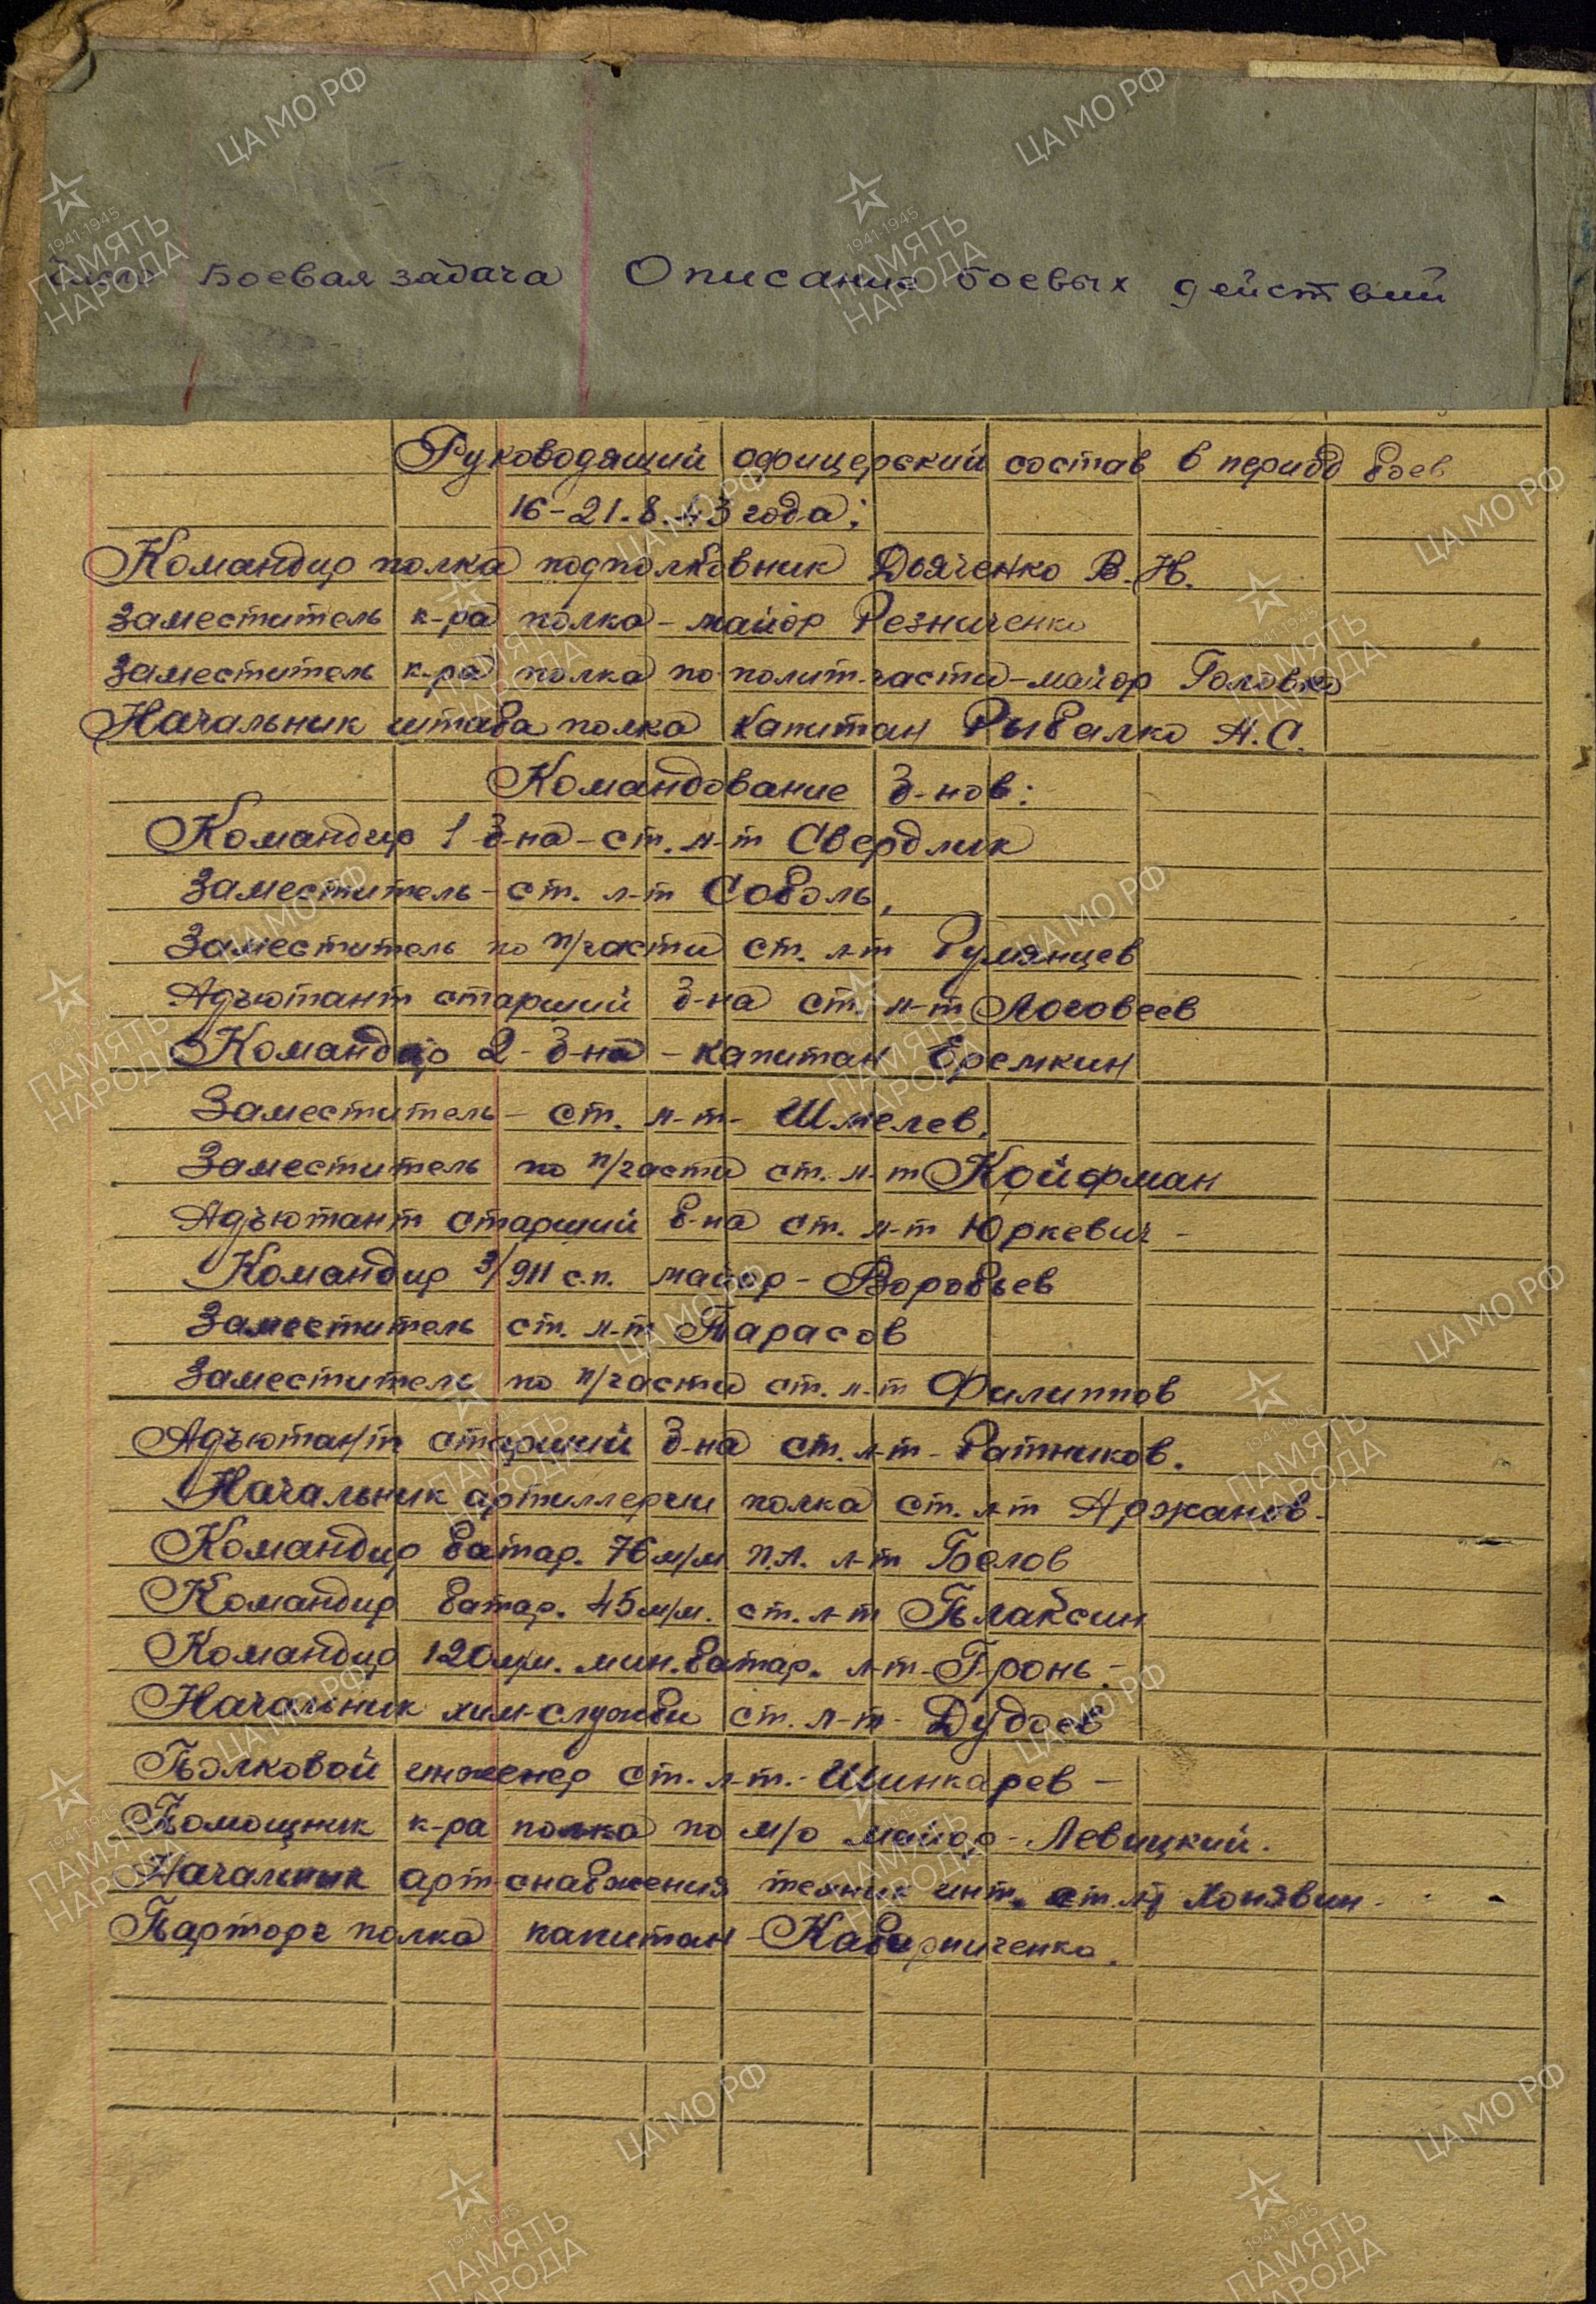 Боевая задача Описание боевых действий
Руководящий офицерский состав в период боев
16-21.8.43 года:
Командир полка подполковник Дьяченко В.Н.
Заместитель к-ра полка - майор Резниченко
Заместитель к-ра полка по полит-части - майор Головко
Начальник штаба полка капитан Рыбалко А.С.
Командование б-нов:
Командир 1 б-на - ст. л-т Свердлик
Заместитель - ст. л-т Соболь,
Заместитель по п/части ст. л-т Румянцев
Адъютант старший б-на ст. л-т Логовеев
Командир 2-б-на - капитан Еремкин
Заместитель - ст. л-т - Шмелев.
Заместитель по п/части ст. л-т Койфман
Адъютант старший б-на ст. л-т Юркевич -
Командир 3/911 с.п. майор - Воробьев
Заместитель ст. л-т Тарасов
Заместитель по п/части ст. л-т Филиппов
Адъютант старший б-на ст. л-т - Ратников.
Начальник артиллерии полка ст. л-т Аржанов.
Командир батар. 76 м/м п.а. л-т Белов
Командир батар. 45 м/м. ст. л-т Плаксин
Командир 120 м/м. мин. батар. л-т - Гронь -
Начальник хим-службы ст. л-т - Дудоев
Полковой инженер ст. л-т. - Шинкарев -
Помощник к-ра полка по м/о майор - Левицкий.
Начальник арт-снабжения техник инт. ст. л-т
Парторг полка капитан -
ЦА МО РФ
1941-1945
ПАМЯТЬ
НАРОДА